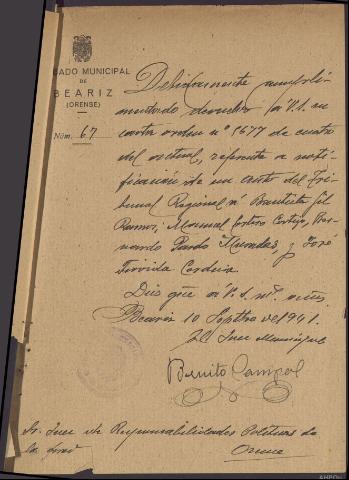 GADO MUNICIPAL
DE
BEARIZ
(ORENSE)
Núm. 67
Debidamente cumpli-
mentado devuelvo a V.S. su
carta orden nº 1677 de cuatro
del actual, referente a noti-
ficación de un auto del Tri-
bunal Regional a Bautista Gil
Ramos, Manuel Cortejo, Ber-
nardo Pardo y José
Cordeira
Dios gue a V.S. ms. años.
Beariz 10 Septbre de 1941.
El Juez Municipal
Benito Campol
Sr. Juez de Responsabilidades Politicas de
Orense